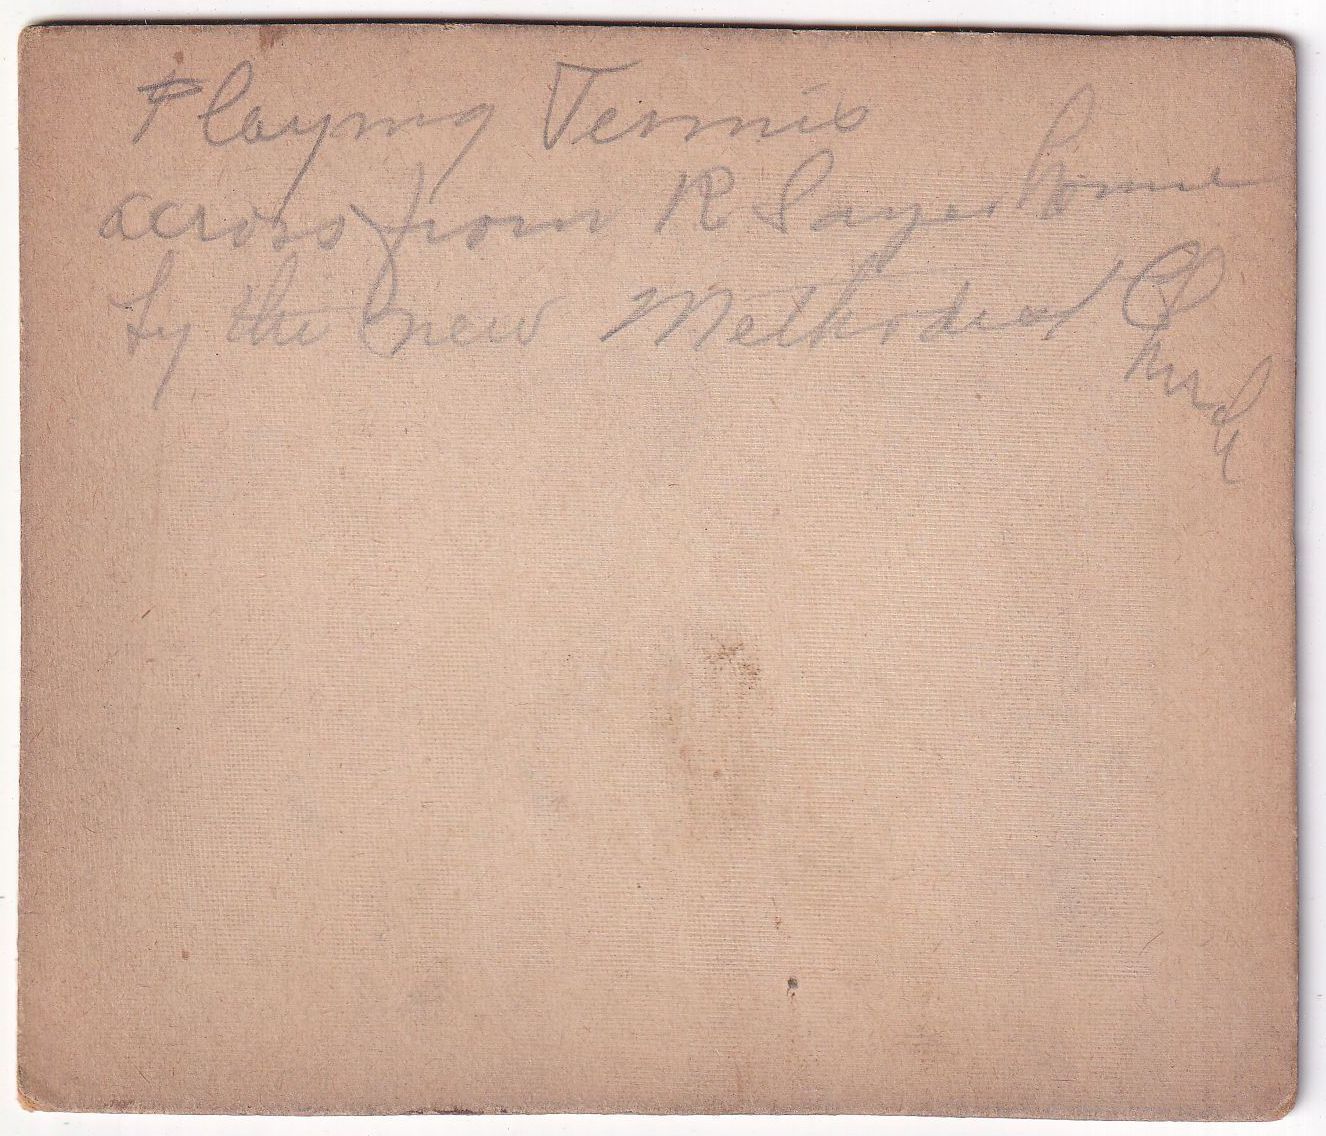 Playing Tennis
across from R Sayer home
by the new Methodist Church